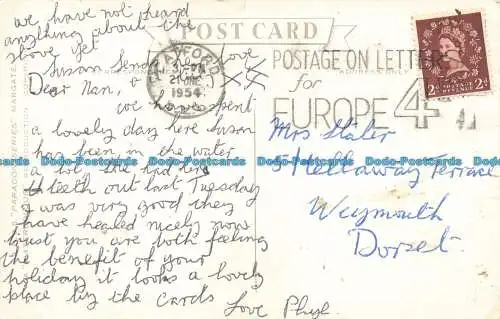 we have not heard
anything about the
stove yet
Susan sends love
xx
Dear Nan,
we have spent
a lovely day here Susan
has been in the water
a lot. She had
teeth out last Tuesday
was very good they
have healed nicely now
trust you are both feeling
the benefit of your
holiday it looks a lovely
place by the cards
Love Phyl
POST CARD
ADDRESS ONLY
1954
POSTAGE ON LETTERS
for
EUROPE 4D
POSTAGE REVENUE
2D 2D
Mrs Slater
Hellaway Terrace
Weymouth
Dorset
Do-Postcards Do-Postcards Do-Postcards Do-Postcards Do-Postcards